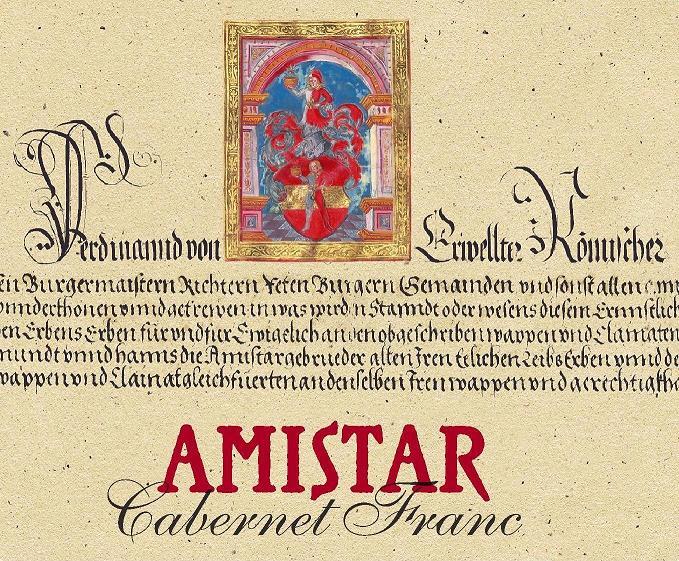 Ferdinannd von Erwellter Römischer
en Burgermaistern Richtern Reten Burgern Gemainden vnd sonst allen
vnnderthonen vnnd getrewen in was wirdn Stanndt oder wesens die sein Ernnstlich
en Erbens Erben für vnd für Ewigelich an den obgeschriben wappen vnd Clainaten
mundt vnnd hanns die Amistar gebrueder allen Iren Eelichen Leibs Erben vnnd de
wappen vnd Clainat gleich fuerten an denselben Iren wappen vnd gerechtigkha
AMISTAR
Cabernet Franc